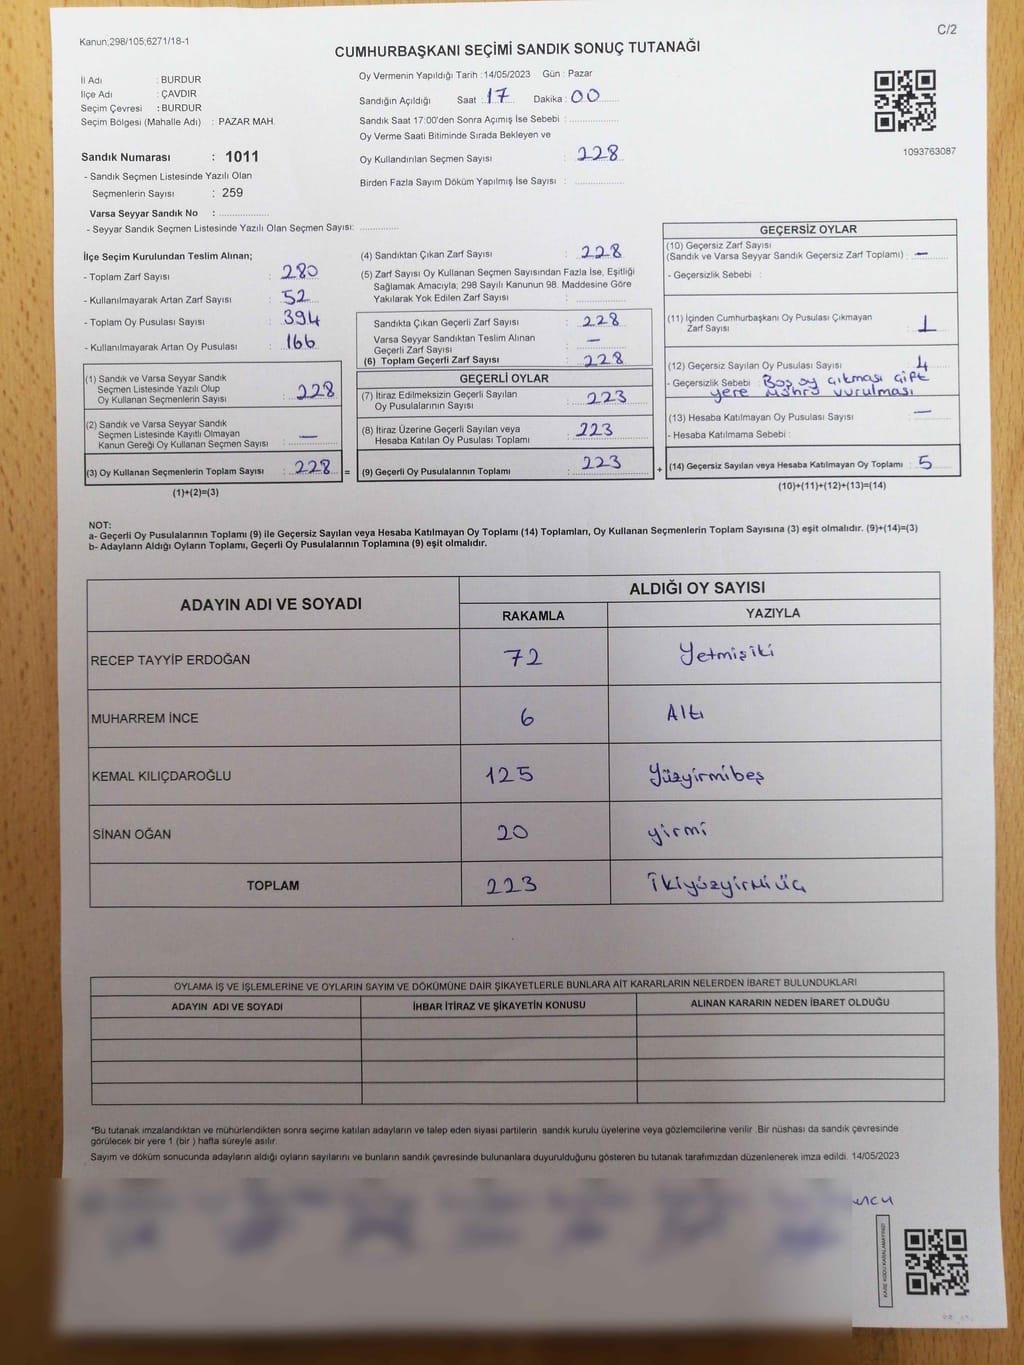 Kanun;298/105;6271/18-1
C/2
CUMHURBAŞKANI SEÇİMİ SANDIK SONUÇ TUTANAĞI
İl Adı : BURDUR
İlçe Adı : ÇAVDIR
Seçim Çevresi : BURDUR
Seçim Bölgesi (Mahalle Adı) : PAZAR MAH.
Sandık Numarası : 1011
- Sandık Seçmen Listesinde Yazılı Olan
Seçmenlerin Sayısı : 259
Varsa Seyyar Sandık No :
- Seyyar Sandık Seçmen Listesinde Yazılı Olan Seçmen Sayısı:
Oy Vermenin Yapıldığı Tarih :14/05/2023 Gün : Pazar
Sandığın Açıldığı Saat : 17 Dakika : 00
Sandık Saat 17:00'den Sonra Açımış İse Sebebi :
Oy Verme Saati Bitiminde Sırada Bekleyen ve
Oy Kullandırılan Seçmen Sayısı : 228
Birden Fazla Sayım Döküm Yapılmış İse Sayısı :
1093763087
İlçe Seçim Kurulundan Teslim Alınan;
- Toplam Zarf Sayısı : 280
- Kullanılmayarak Artan Zarf Sayısı : 52
- Toplam Oy Pusulası Sayısı : 394
- Kullanılmayarak Artan Oy Pusulası : 166
(1) Sandık ve Varsa Seyyar Sandık
Seçmen Listesinde Yazılı Olup
Oy Kullanan Seçmenlerin Sayısı : 228
(2) Sandık ve Varsa Seyyar Sandık
Seçmen Listesinde Kayıtlı Olmayan
Kanun Gereği Oy Kullanan Seçmen Sayısı : —
(3) Oy Kullanan Seçmenlerin Toplam Sayısı : 228 =
(1)+(2)=(3)
(4) Sandıktan Çıkan Zarf Sayısı : 228
(5) Zarf Sayısı Oy Kullanan Seçmen Sayısından Fazla İse, Eşitliği
Sağlamak Amacıyla; 298 Sayılı Kanunun 98. Maddesine Göre
Yakılarak Yok Edilen Zarf Sayısı :
Sandıkta Çıkan Geçerli Zarf Sayısı : 228
Varsa Seyyar Sandıktan Teslim Alınan
Geçerli Zarf Sayısı : —
(6) Toplam Geçerli Zarf Sayısı : 228
GEÇERLİ OYLAR
(7) İtiraz Edilmeksizin Geçerli Sayılan
Oy Pusulalarının Sayısı : 223
(8) İtiraz Üzerine Geçerli Sayılan veya
Hesaba Katılan Oy Pusulası Toplamı : 223
(9) Geçerli Oy Pusulalarının Toplamı : 223 +
GEÇERSİZ OYLAR
(10) Geçersiz Zarf Sayısı
(Sandık ve Varsa Seyyar Sandık Geçersiz Zarf Toplamı) : —
- Geçersizlik Sebebi :
(11) İçinden Cumhurbaşkanı Oy Pusulası Çıkmayan
Zarf Sayısı : 1
(12) Geçersiz Sayılan Oy Pusulası Sayısı : 4
- Geçersizlik Sebebi : Boş oy çıkması çift
yere mührü vurulması
(13) Hesaba Katılmayan Oy Pusulası Sayısı : —
- Hesaba Katılmama Sebebi :
(14) Geçersiz Sayılan veya Hesaba Katılmayan Oy Toplamı : 5
(10)+(11)+(12)+(13)=(14)
NOT:
a- Geçerli Oy Pusulalarının Toplamı (9) ile Geçersiz Sayılan veya Hesaba Katılmayan Oy Toplamı (14) Toplamları, Oy Kullanan Seçmenlerin Toplam Sayısına (3) eşit olmalıdır. (9)+(14)=(3)
b- Adayların Aldığı Oyların Toplamı, Geçerli Oy Pusulalarının Toplamına (9) eşit olmalıdır.
ADAYIN ADI VE SOYADI
ALDIĞI OY SAYISI
RAKAMLA YAZIYLA
RECEP TAYYİP ERDOĞAN 72 Yetmişiki
MUHARREM İNCE 6 Altı
KEMAL KILIÇDAROĞLU 125 Yüzyirmibeş
SİNAN OĞAN 20 yirmi
TOPLAM 223 İkiyüzyirmiüç
OYLAMA İŞ VE İŞLEMLERİNE VE OYLARIN SAYIM VE DÖKÜMÜNE DAİR ŞİKAYETLERLE BUNLARA AİT KARARLARIN NELERDEN İBARET BULUNDUKLARI
ADAYIN ADI VE SOYADI İHBAR İTİRAZ VE ŞİKAYETİN KONUSU ALINAN KARARIN NEDEN İBARET OLDUĞU
*Bu tutanak imzalandıktan ve mühürlendikten sonra seçime katılan adayların ve talep eden siyasi partilerin sandık kurulu üyelerine veya gözlemcilerine verilir .Bir nüshası da sandık çevresinde
görülecek bir yere 1 (bir ) hafta süreyle asılır.
Sayım ve döküm sonucunda adayların aldığı oyların sayılarını ve bunların sandık çevresinde bulunanlara duyurulduğunu gösteren bu tutanak tarafımızdan düzenlenerek imza edildi. 14/05/2023
KARE KODU KARALAMAYINIZ!